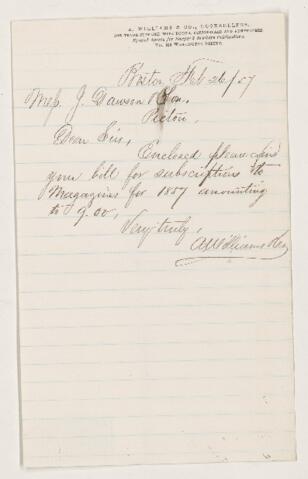 A. WILLIAMS & CO., BOOKSELLERS,
THE TRADE SUPPLIED WITH BOOKS, PERIODICALS AND NEWSPAPERS
Special Agents for Harper & Brothers Publications.
No. 100 WASHINGTON STREET.
Boston Feb 26/57
Mess J. Dawson & Son,
Pictou.
Dear Sirs,
Enclosed please find
your bill for subscriptions to
Magazines for 1857 amounting
to 9.00,
Very truly,
A Williams & Co